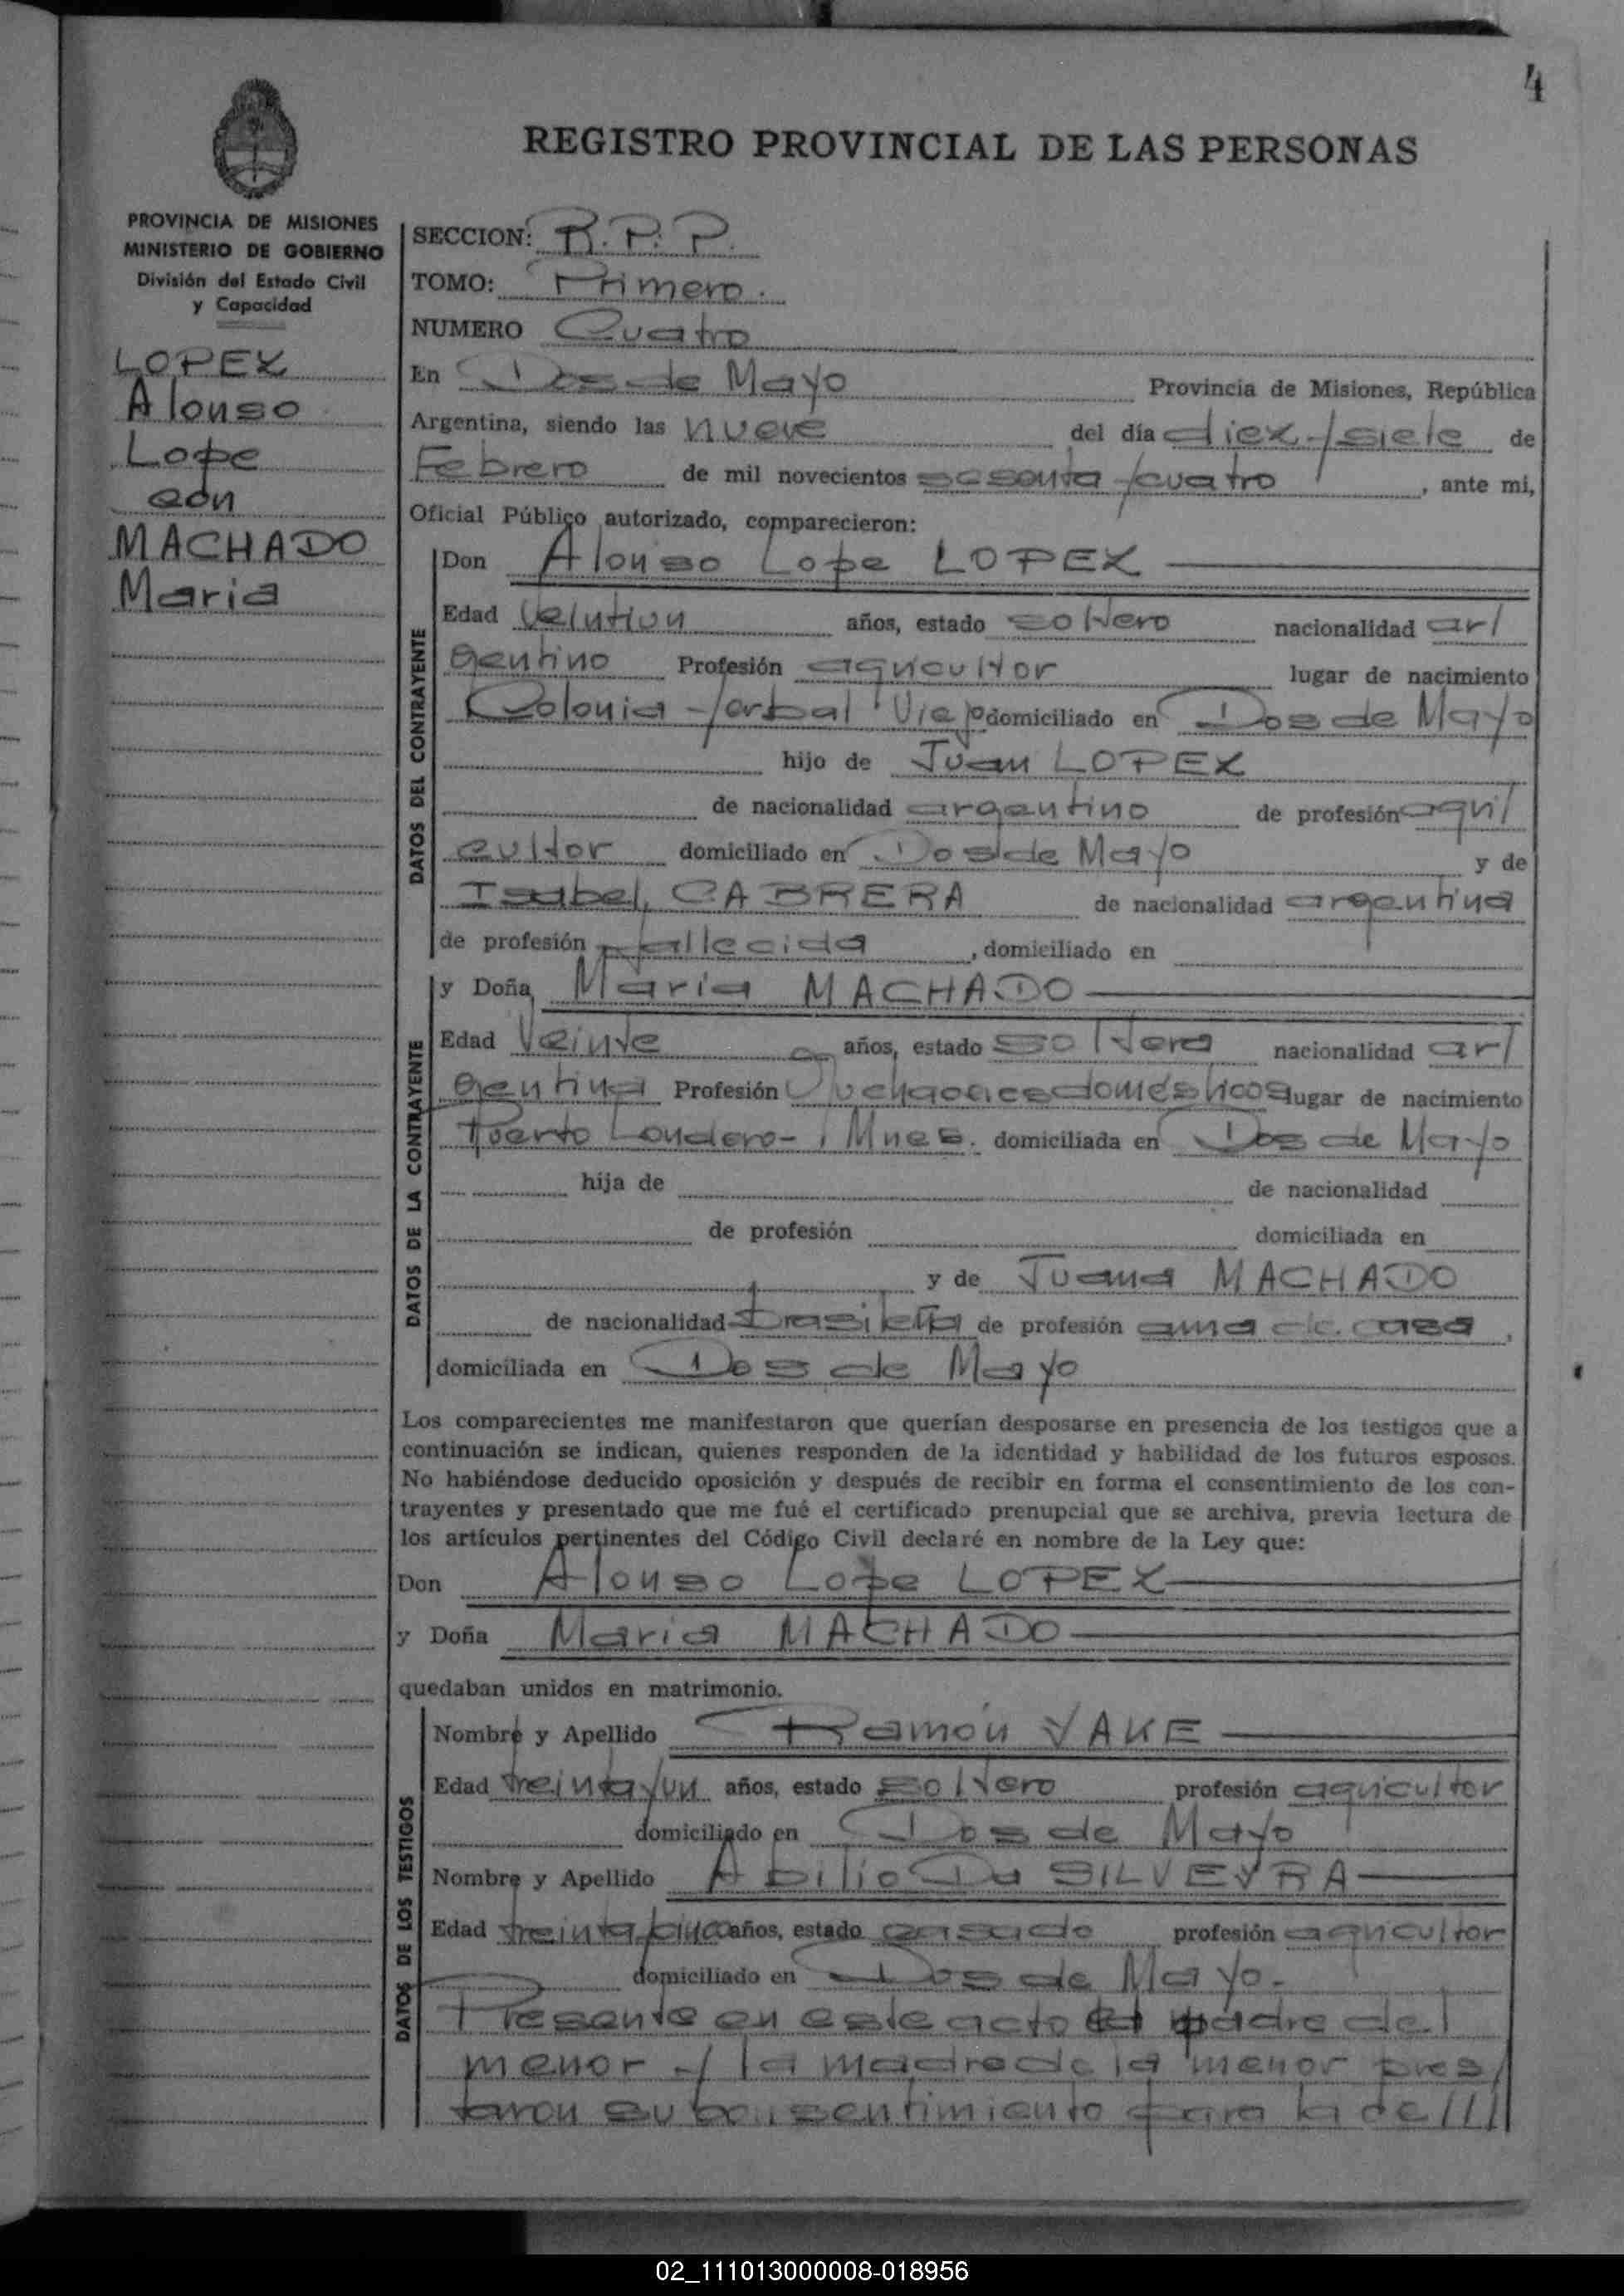 4
REGISTRO PROVINCIAL DE LAS PERSONAS
PROVINCIA DE MISIONES
MINISTERIO DE GOBIERNO
División del Estado Civil
y Capacidad
LOPEZ
Alonso
Lope
con
MACHADO
Maria
SECCION: R. P. P.
TOMO: Primero.
NUMERO Cuatro
En Dos de Mayo Provincia de Misiones, República
Argentina, siendo las nueve del día diez y siete de
Febrero de mil novecientos sesenta y cuatro, ante mi,
Oficial Público autorizado, comparecieron:
DATOS DEL CONTRAYENTE
Don Alonso Lope LOPEZ
Edad veintiun años, estado soltero nacionalidad ar/
gentino Profesión agricultor lugar de nacimiento
Colonia Yerbal Viejo domiciliado en Dos de Mayo
hijo de Juan LOPEZ
de nacionalidad argentino de profesión agri/
cultor domiciliado en Dos de Mayo y de
Isabel CABRERA de nacionalidad argentina
de profesión fallecida, domiciliado en
DATOS DE LA CONTRAYENTE
y Doña Maria MACHADO
Edad Veinte años, estado soltera nacionalidad ar/
gentina Profesión domésticos lugar de nacimiento
Puerto Londero - Mnes. domiciliada en Dos de Mayo
hija de de nacionalidad
de profesión domiciliada en
y de Juana MACHADO
de nacionalidad brasileña de profesión ama de casa,
domiciliada en Dos de Mayo
Los comparecientes me manifestaron que querían desposarse en presencia de los testigos que a
continuación se indican, quienes responden de la identidad y habilidad de los futuros esposos.
No habiéndose deducido oposición y después de recibir en forma el consentimiento de los con-
trayentes y presentado que me fué el certificado prenupcial que se archiva, previa lectura de
los artículos pertinentes del Código Civil declaré en nombre de la Ley que:
Don Alonso Lope LOPEZ
y Doña Maria MACHADO
quedaban unidos en matrimonio.
DATOS DE LOS TESTIGOS
Nombre y Apellido Ramón YAKE
Edad treinta y un años, estado soltero profesión agricultor
domiciliado en Dos de Mayo
Nombre y Apellido Abilio Da SILVEYRA
Edad treinta y cinco años, estado casado profesión agricultor
domiciliado en Dos de Mayo.-
Presente en este acto el padre del
menor y la madre de la menor pres/
taron su consentimiento para la ce///
02_111013000008-018956